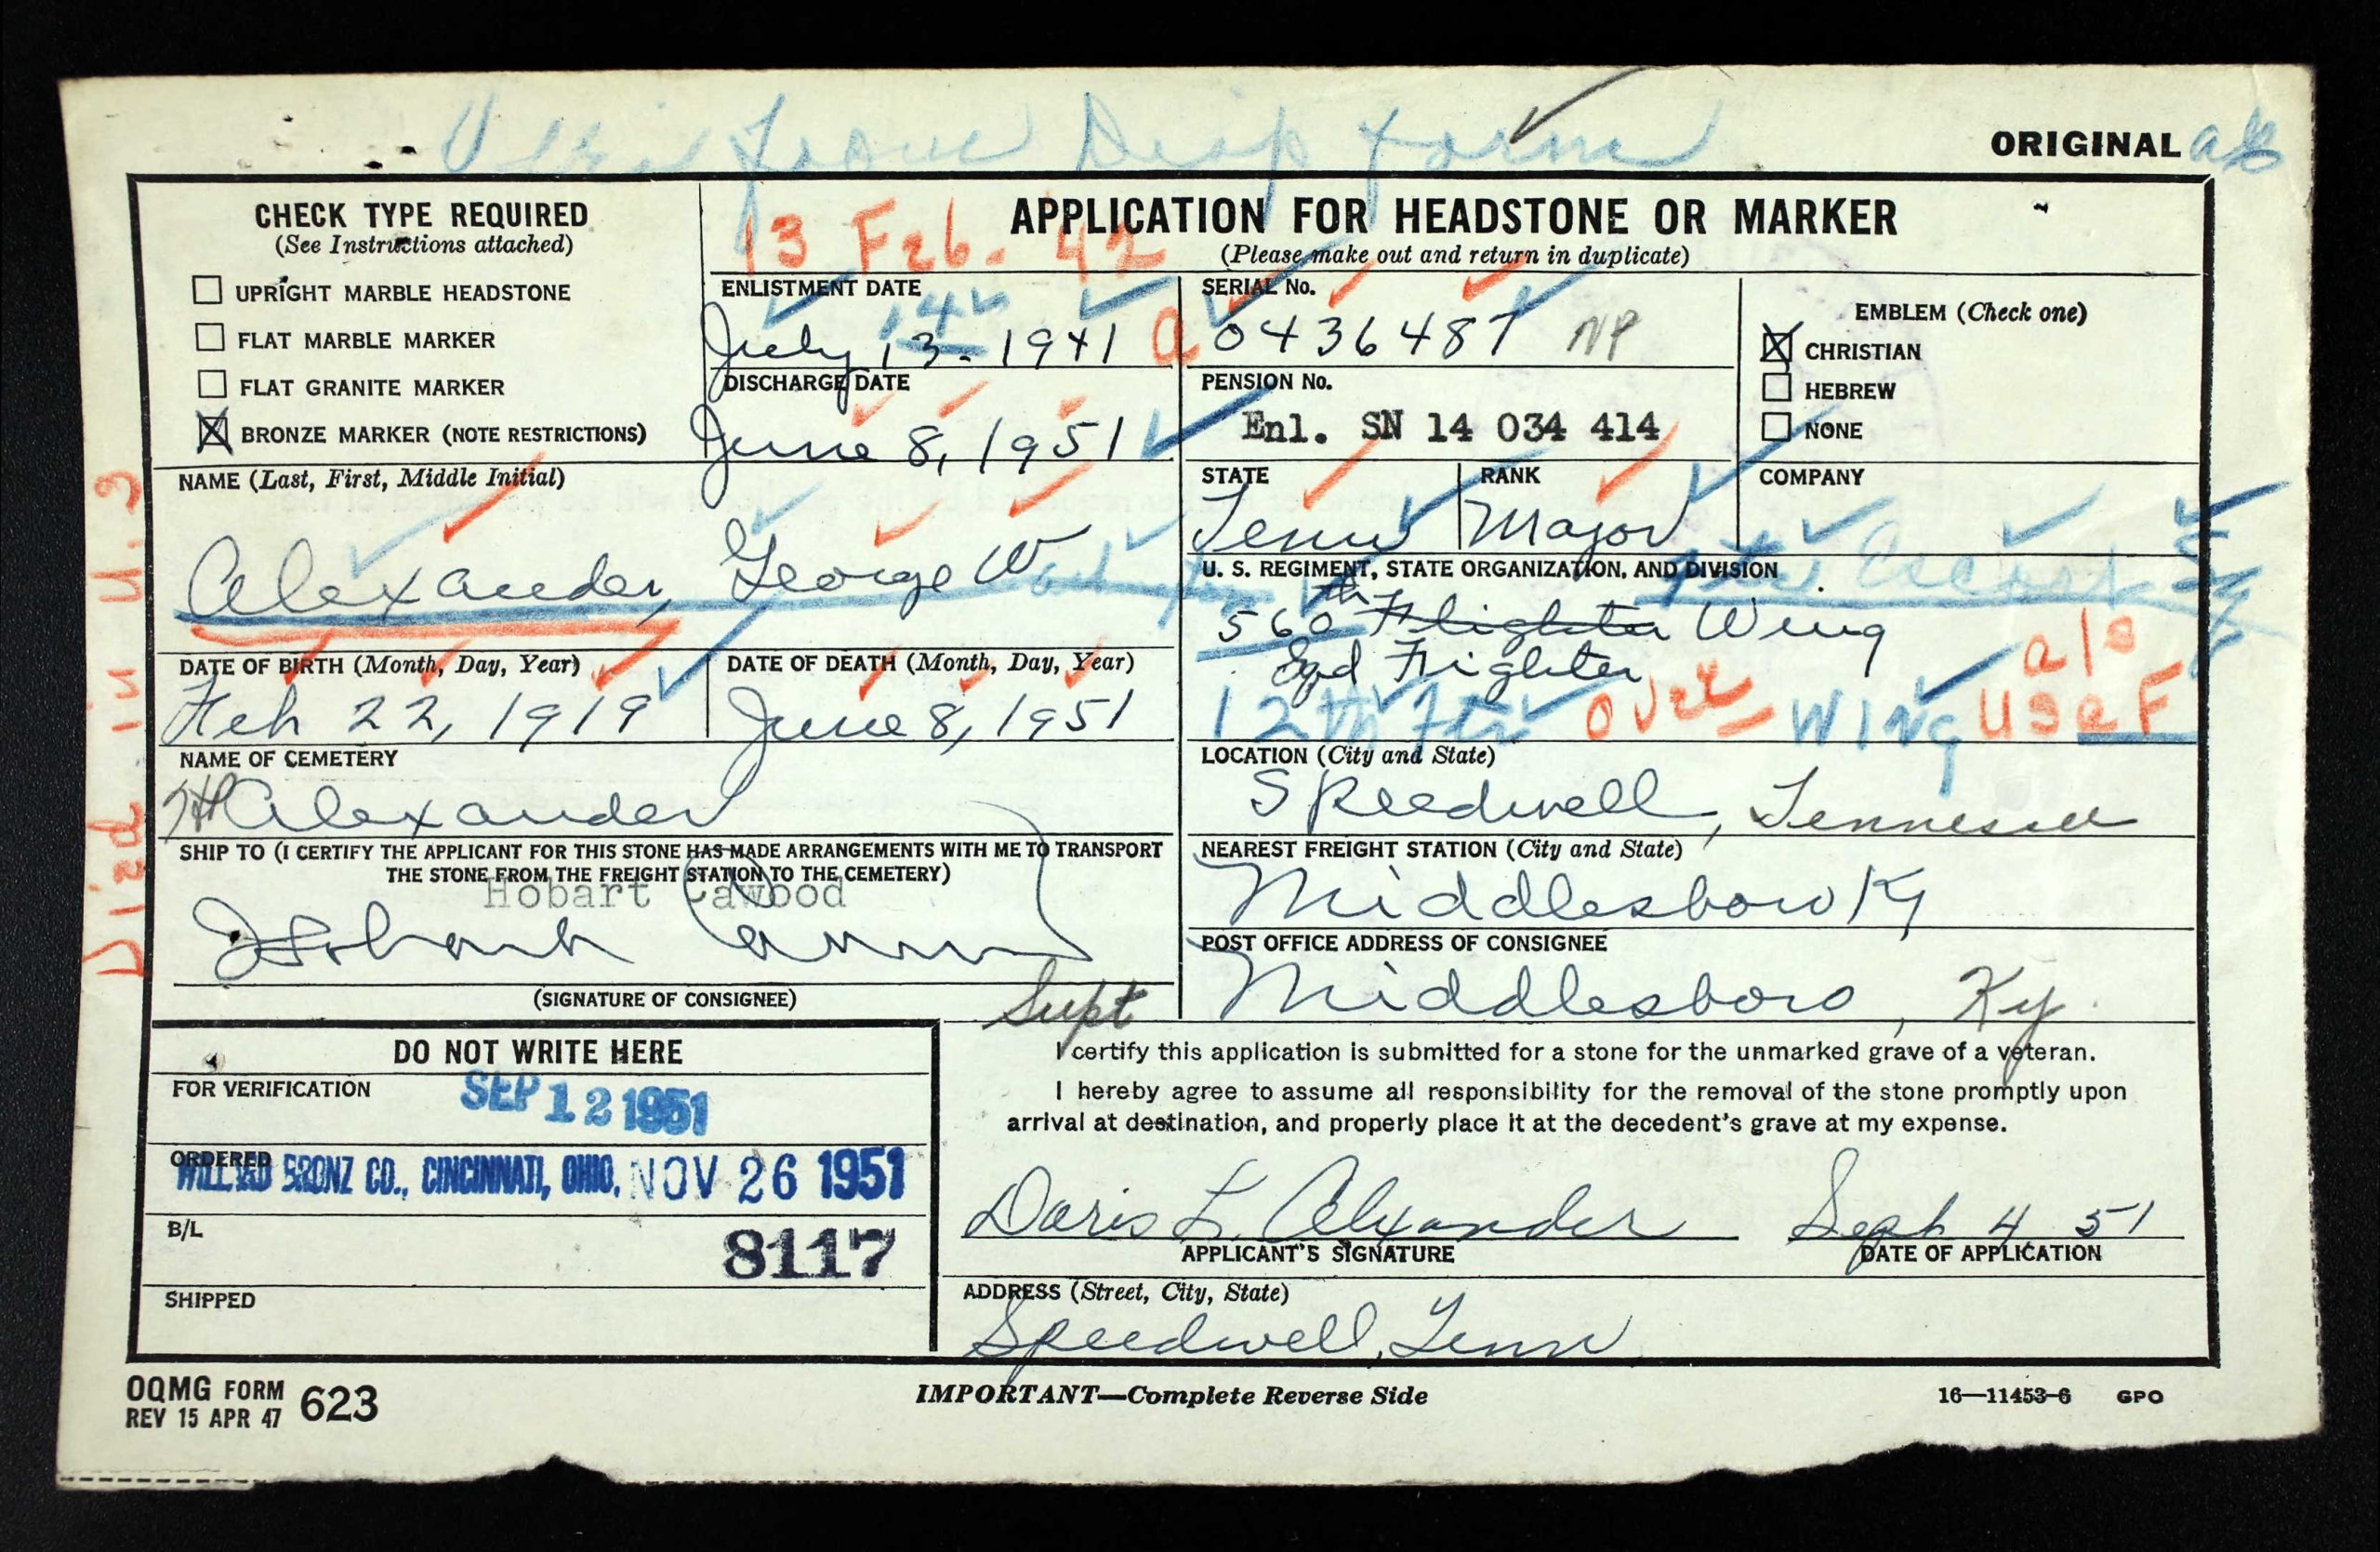 Disp form
ORIGINAL
CHECK TYPE REQUIRED
(See Instructions attached)
UPRIGHT MARBLE HEADSTONE
FLAT MARBLE MARKER
FLAT GRANITE MARKER
BRONZE MARKER (NOTE RESTRICTIONS)
APPLICATION FOR HEADSTONE OR MARKER
(Please make out and return in duplicate)
13 Feb. 42
ENLISTMENT DATE
14
July 13. 1941
SERIAL No.
O436487 NP
EMBLEM (Check one)
CHRISTIAN
HEBREW
NONE
DISCHARGE DATE
June 8, 1951
PENSION No.
Enl. SN 14 034 414
NAME (Last, First, Middle Initial)
Alexander, George W
STATE
Tenn
RANK
Major
COMPANY
U. S. REGIMENT, STATE ORGANIZATION, AND DIVISION
560th Flighter Wing
Sqd Frighter
12th Ftr Wing
a/o
USAF
DATE OF BIRTH (Month, Day, Year)
Feh 22, 1919
DATE OF DEATH (Month, Day, Year)
June 8, 1951
NAME OF CEMETERY
Alexander
LOCATION (City and State)
Speedwell, Tennessee
SHIP TO (I CERTIFY THE APPLICANT FOR THIS STONE HAS MADE ARRANGEMENTS WITH ME TO TRANSPORT
THE STONE FROM THE FREIGHT STATION TO THE CEMETERY)
Hobart Cawood
(SIGNATURE OF CONSIGNEE)
Supt
NEAREST FREIGHT STATION (City and State)
Middlesboro Ky
POST OFFICE ADDRESS OF CONSIGNEE
Middlesboro, Ky.
Died in U.S
DO NOT WRITE HERE
FOR VERIFICATION
SEP 12 1951
ORDERED
BRONZ CO., CINCINNATI, OHIO. NOV 26 1951
B/L
8117
SHIPPED
I certify this application is submitted for a stone for the unmarked grave of a veteran.
I hereby agree to assume all responsibility for the removal of the stone promptly upon
arrival at destination, and properly place it at the decedent's grave at my expense.
Doris L. Alexander
Sept 4 51
APPLICANT'S SIGNATURE
DATE OF APPLICATION
ADDRESS (Street, City, State)
Speedwell, Tenn
OQMG FORM 623
REV 15 APR 47
IMPORTANT—Complete Reverse Side
16—11453-6 GPO